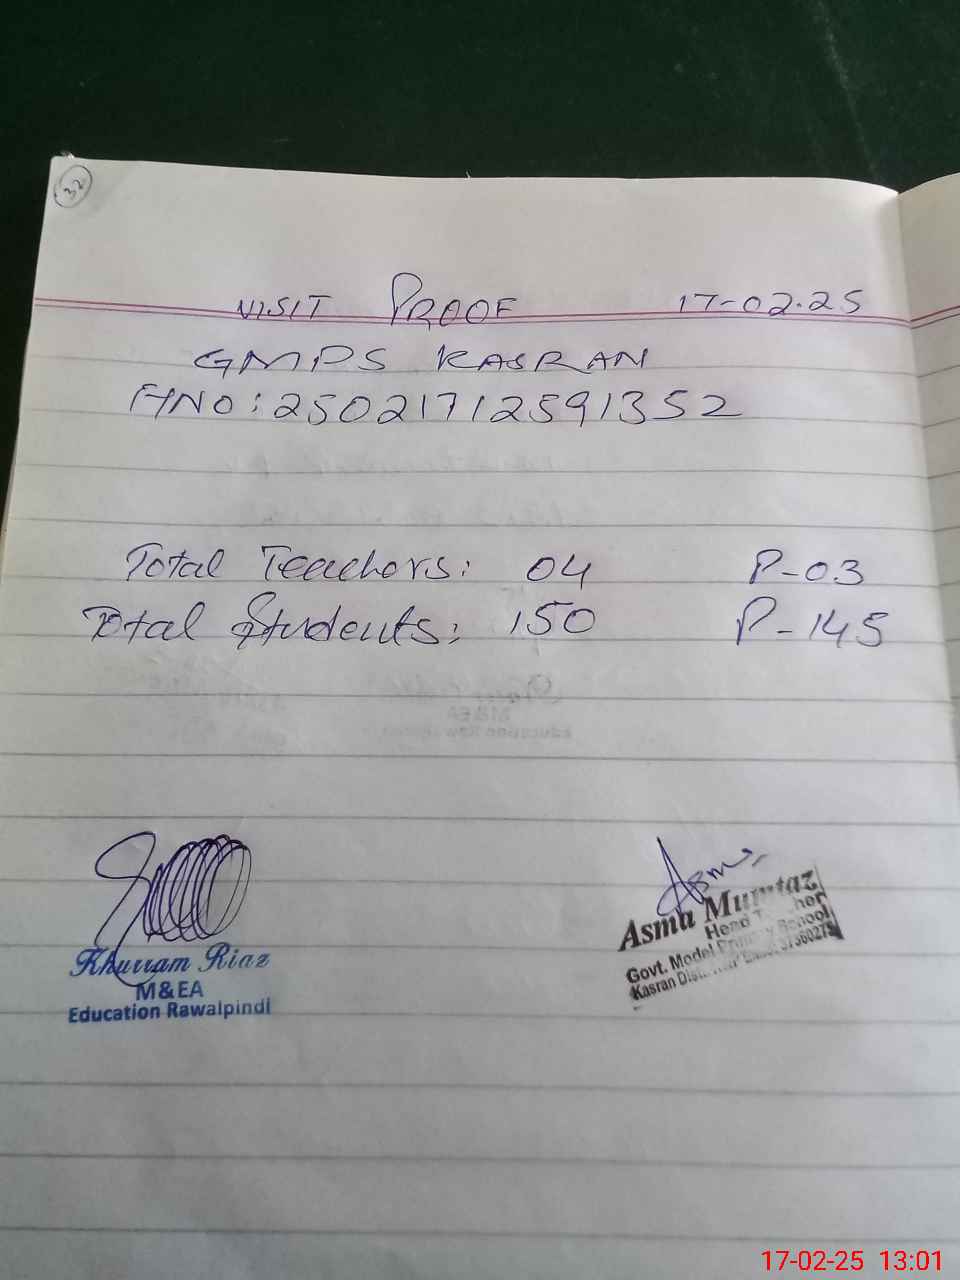 32
VISIT PROOF 17-02-25
GMPS KASRAN
HNO: 25021712591352
Total Teachers: 04 P-03
Total Students: 150 P-145
Khurram Riaz
M&EA
Education Rawalpindi
Asma
Asma Mumtaz
Head Teacher
Govt. Model Primary School
Kasran 37360275
17-02-25 13:01